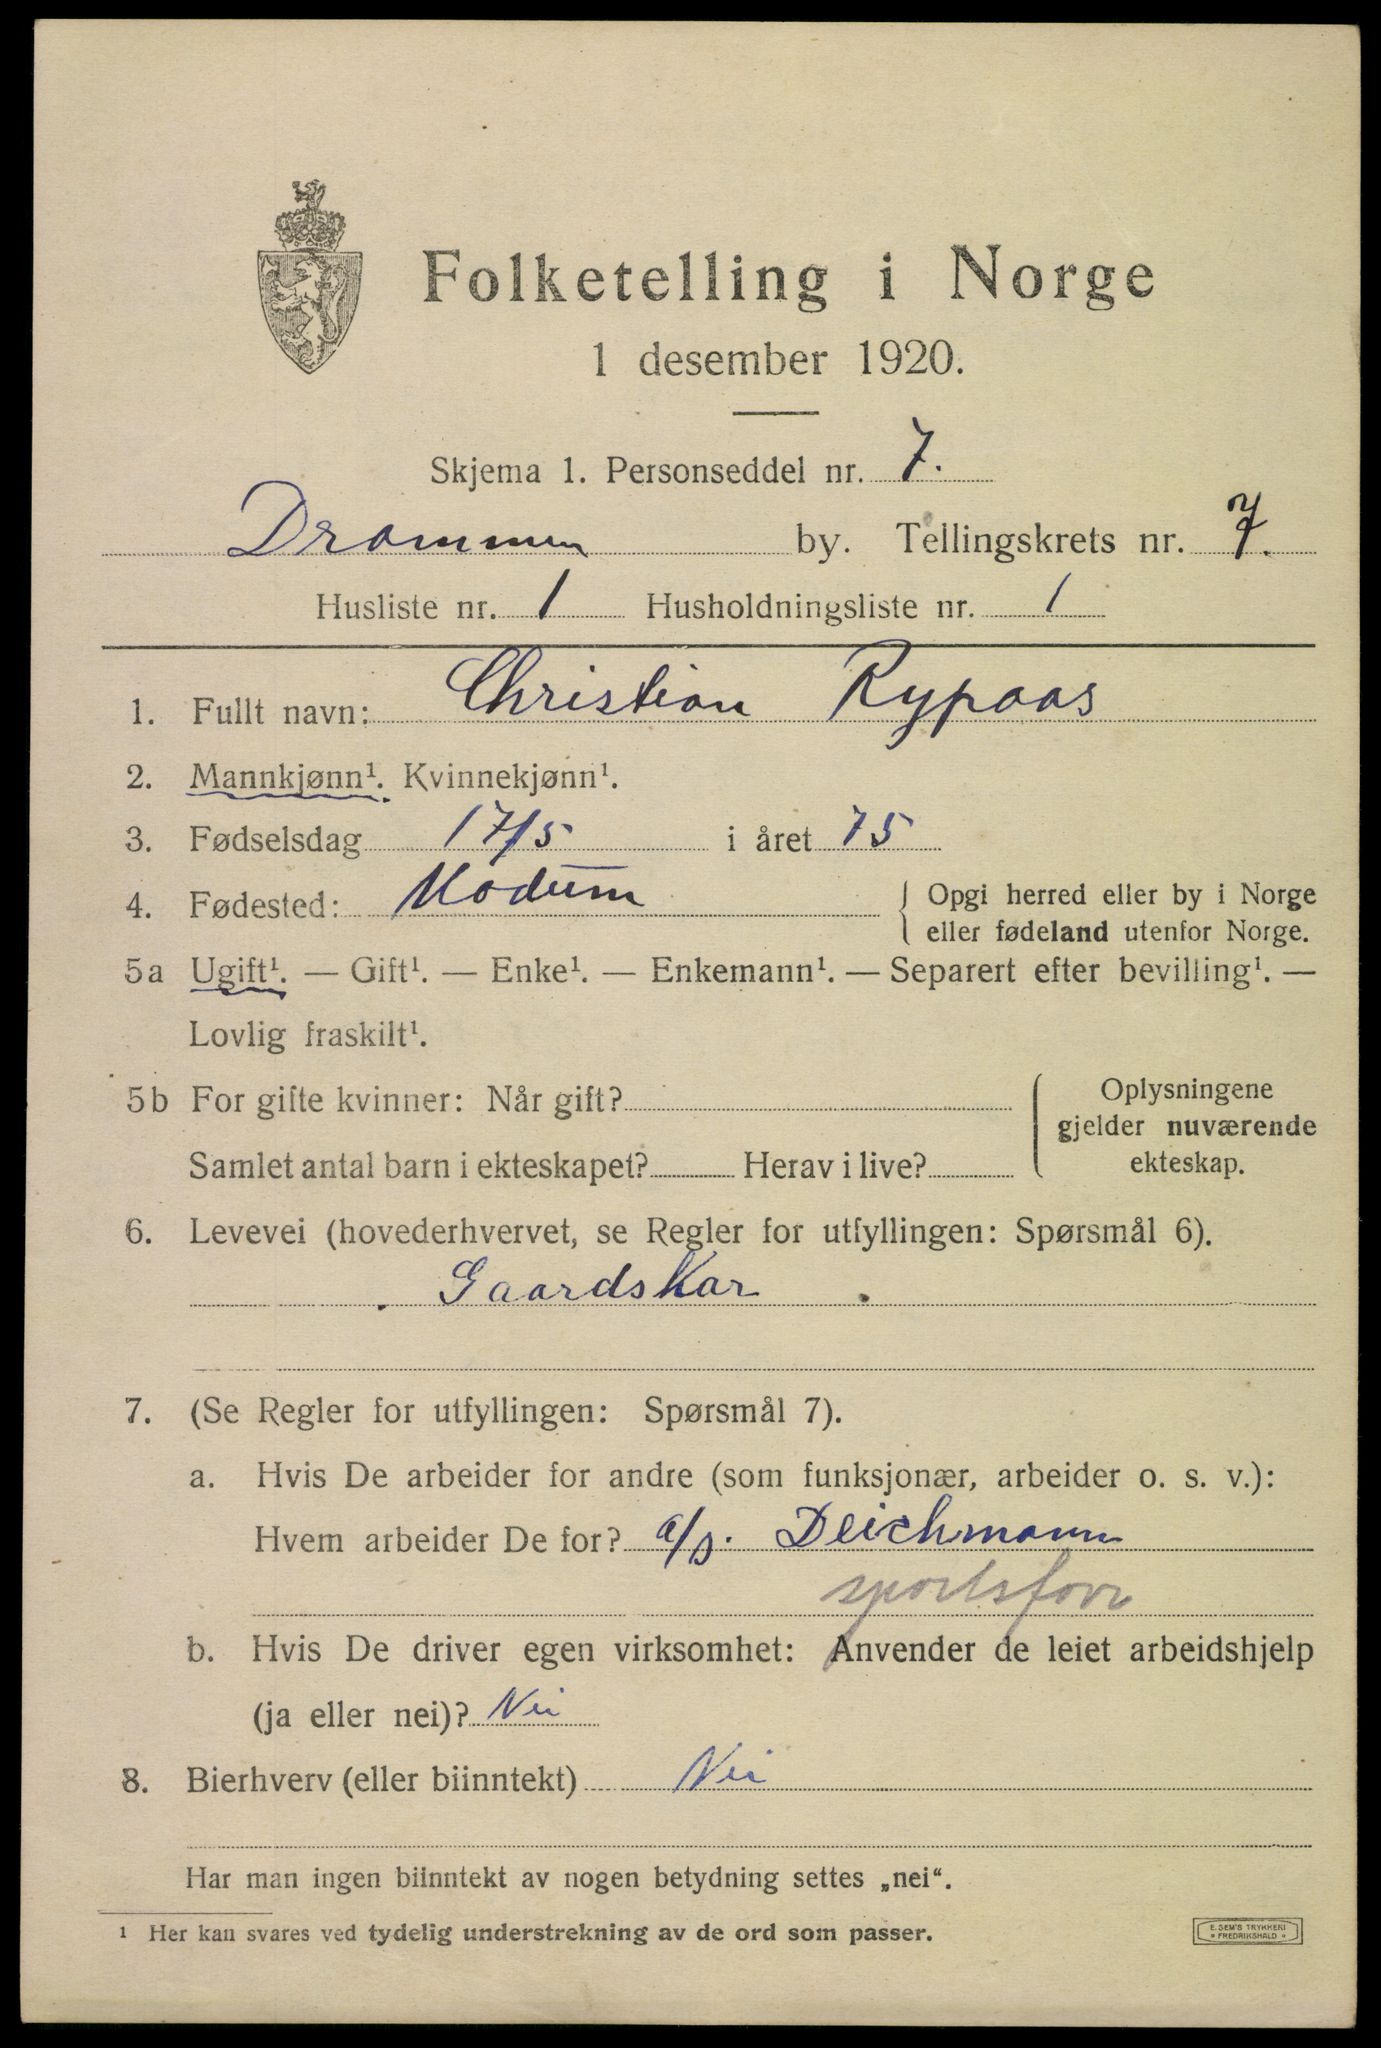 Folketelling i Norge
1 desember 1920.
Skjema 1. Personseddel nr. 7.
Drammen by. Tellingskrets nr. 7.
Husliste nr. 1 Husholdningsliste nr. 1
1. Fullt navn: Christian Rypaas
2. Mannkjønn¹. Kvinnekjønn¹.
3. Fødselsdag 17/5 i året 75
4. Fødested: Modum { Opgi herred eller by i Norge
eller fødeland utenfor Norge.
5a Ugift¹. — Gift¹. — Enke¹. — Enkemann¹. — Separert efter bevilling¹. —
Lovlig fraskilt¹.
5b For gifte kvinner: Når gift?
Samlet antal barn i ekteskapet? Herav i live?
Oplysningene
gjelder nuværende
ekteskap.
6. Levevei (hovederhvervet, se Regler for utfyllingen: Spørsmål 6).
Gaardskar
7. (Se Regler for utfyllingen: Spørsmål 7).
a. Hvis De arbeider for andre (som funksjonær, arbeider o. s. v.):
Hvem arbeider De for? a/s. Deichmann
sportsforr
b. Hvis De driver egen virksomhet: Anvender de leiet arbeidshjelp
(ja eller nei)? Nei
8. Bierhverv (eller biinntekt) Nei
Har man ingen biinntekt av nogen betydning settes „nei“.
¹ Her kan svares ved tydelig understrekning av de ord som passer.
E. SEM'S TRYKKERI
FREDRIKSHALD